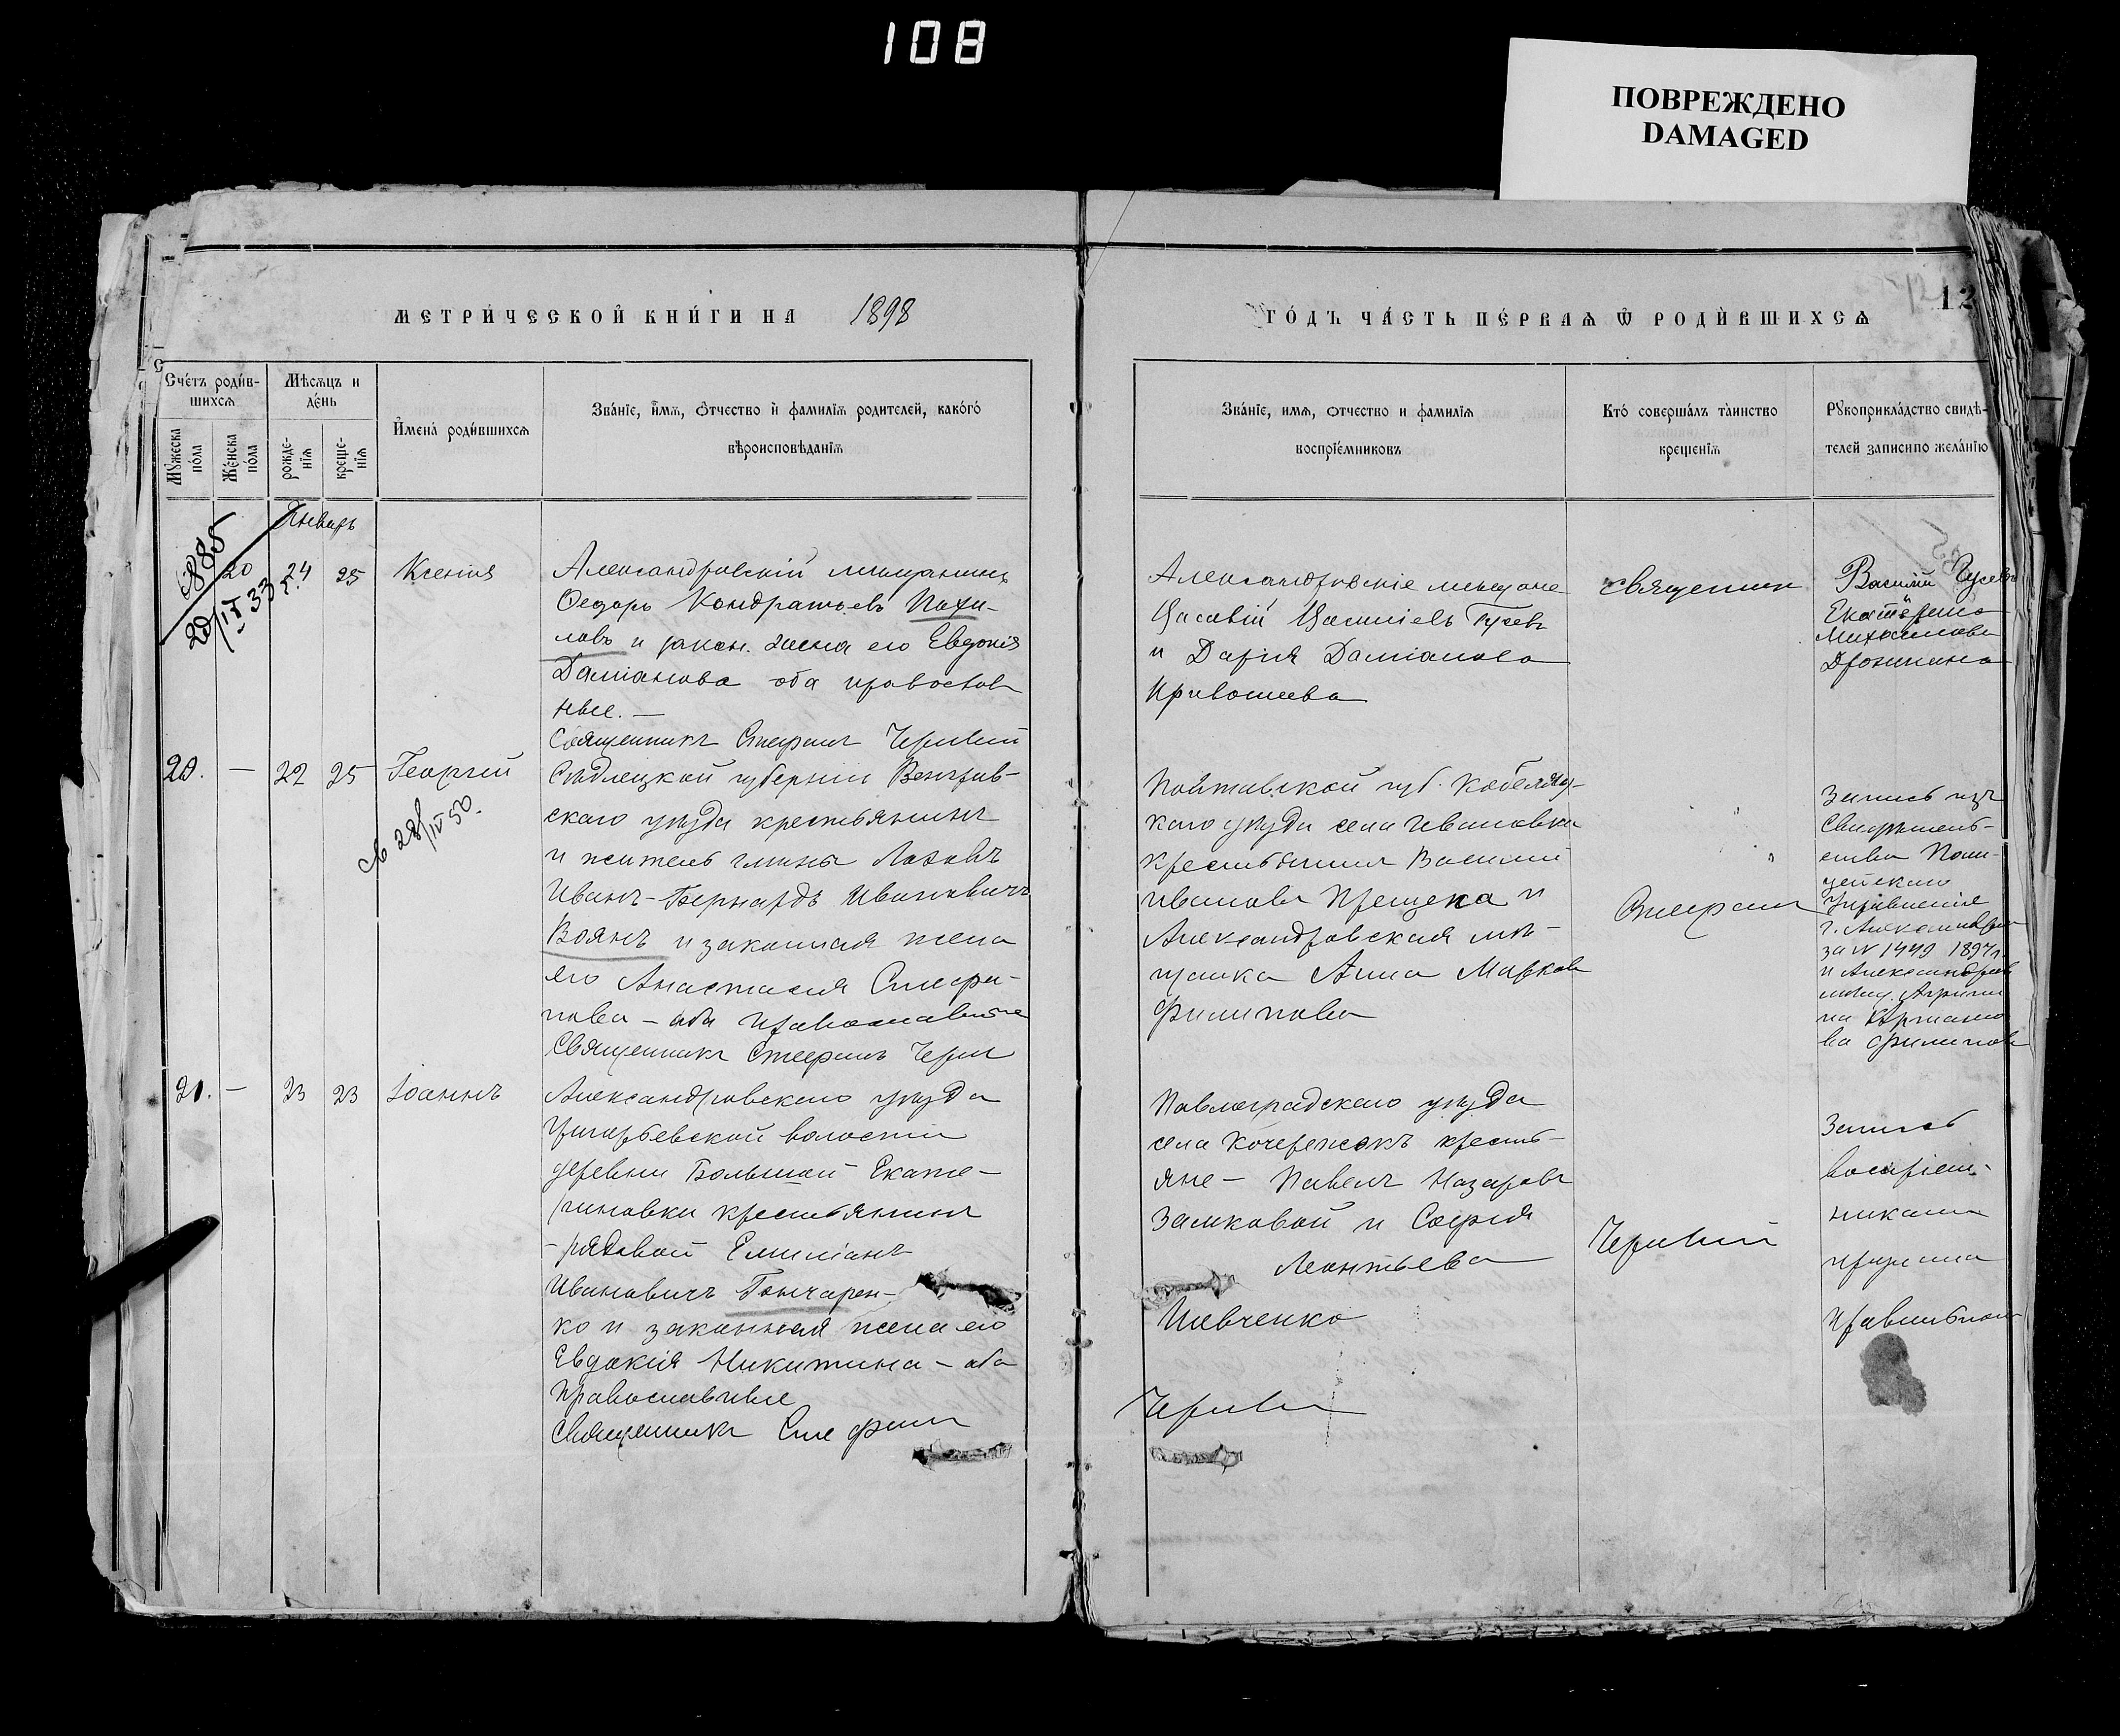 108
ПОВРЕЖДЕНО
DAMAGED
МЕТРИ́ЧЕСКОЙ КНИ́ГИ НА 1898
ГО́ДЪ ЧА́СТЬ ПЕ́РВАѦ Ѿ РОДИ́ВШИХСѦ
12
Сче́тъ роди́в-
шихсѧ
Мѣсѧцъ и
де́нь
И҆мена̀ роди́вшихсѧ
Зва́нїе, и҆́мѧ, ѻ҆́тчество и҆ фамилїѧ родителей, како́гѡ
вѣроисповѣданїѧ
Мꙋ́жеска
по́ла
Же́нска
по́ла
рожде-
нїѧ
креще-
нїѧ
Зва́нїе, имѧ, отчество и фамилїѧ
воспрїе́мниковъ
Кто́ соверша́лъ та̀инство
крещенїѧ
Рꙋкоприкла́дство свидѣ-
телей записи по жела́нїю
Январь
6885
20/IV 33 г.
20 24 25 Ксенія
Александровскій мѣщанинъ
Ѳедоръ Кондратьевъ Пахи-
ловъ и закон. жена его Евдокія
Даміанова оба православ
ные. —
Священникъ Стефанъ Червий
Александровскіе мещане
Василіевъ Гусевъ
и Дарія Даміанова
Кривошеева
священник
Василий Гусевъ
Екатерина
Михаилова
20. — 22 25 Георгій
св 28/IV 50.
Сѣдлецкой губерніи Венгров-
скаго уѣзда крестьянинъ
и житель гмины Лоховъ
Иванъ-Бернардъ Ивановичъ
Воянъ и законная жена
его Анастасія Стефа-
нова — оба православные
Священникъ Стефанъ Черви
Полтавской губ. Кобеляц-
каго уѣзда села Ивановки
крестьянинъ Василій
Ивановъ Прещека и
Александровская мѣ-
щанка Анна Маркова
Филипова
Стефанъ
Запись изъ
Свидѣтель-
ства Поли-
цейскаго
Управленія
г. Александров
за N 1449 1897 г.
и Александров
мѣщ. Агрипи
на
ва Филипова
21. — 23 23 Іоаннъ
Александровскаго уѣзда
Григорьевской волости
деревни Большой Екате-
риновки крестьянинъ
- рядовой Емиліанъ
Ивановичъ Гончарен-
ко и законная жена его
Евдокія Никитина — оба
православные
Священникъ Стефанъ
Павлоградскаго уѣзда
села Кочережекъ кресть-
яне — Павелъ Назаровъ
Замковой и Софія
Леонтьева
Шевченко
Черви
Червий
Запись
воспріем-
никами
признана
правильною